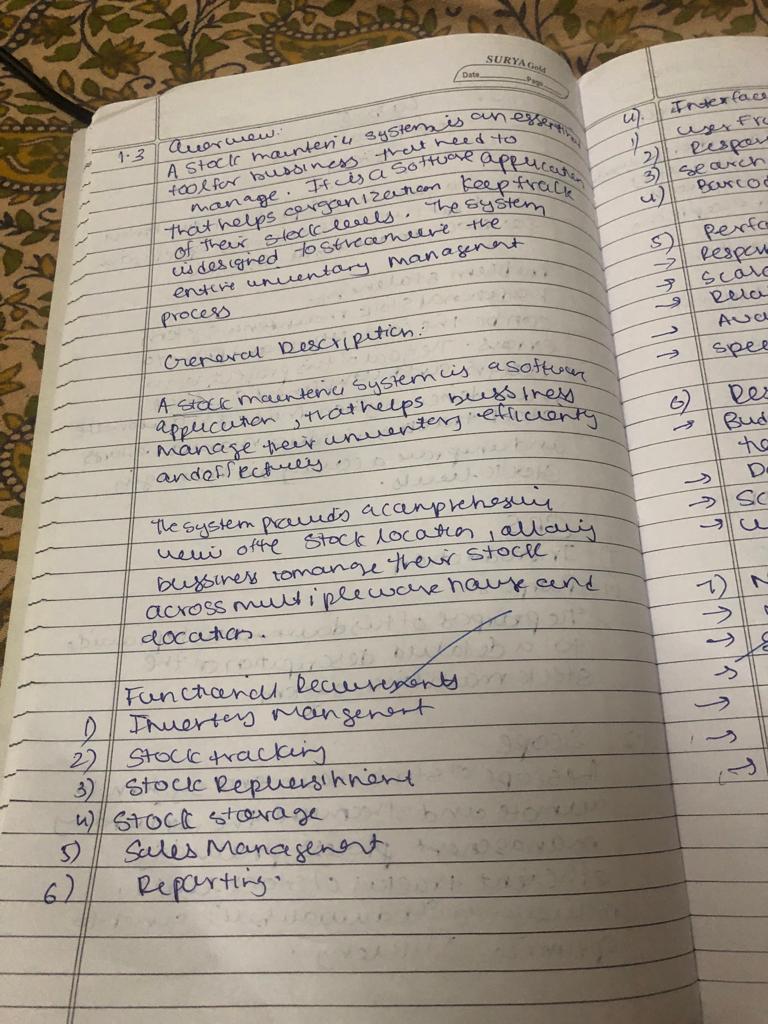 SURYA Gold
Date Page
1.3 Overview:
A Stock maintenic system is an essential
tool for bussiness that need to
manage. It is a software application
that helps organization keep track
of their stock levels. The system
is designed to streamline the
entire inventary managment
process
General Description:
A stock maintenic System is a software
application, that helps bussiness
manage their inventory efficienty
and effectively.
The system provides a comprehesive
view of the stock location, allowing
bussiness to mange their stock
across multiple warehouse and
location.
Functional Requirements
1) Inventory Mangement
2) Stock tracking
3) Stock Replenishment
4) Stock storage
5) Sales Management
6) Reporting.
4). Interface
1) User Fr
2) Respon
3) Search
4) Barcod
5) Perfo
→ Respon
→ Scala
→ Relai
→ Ava
→ Spee
6) Des
→ Bud
→ D
→ Sc
→
7) N
→
→
→
→
→
→